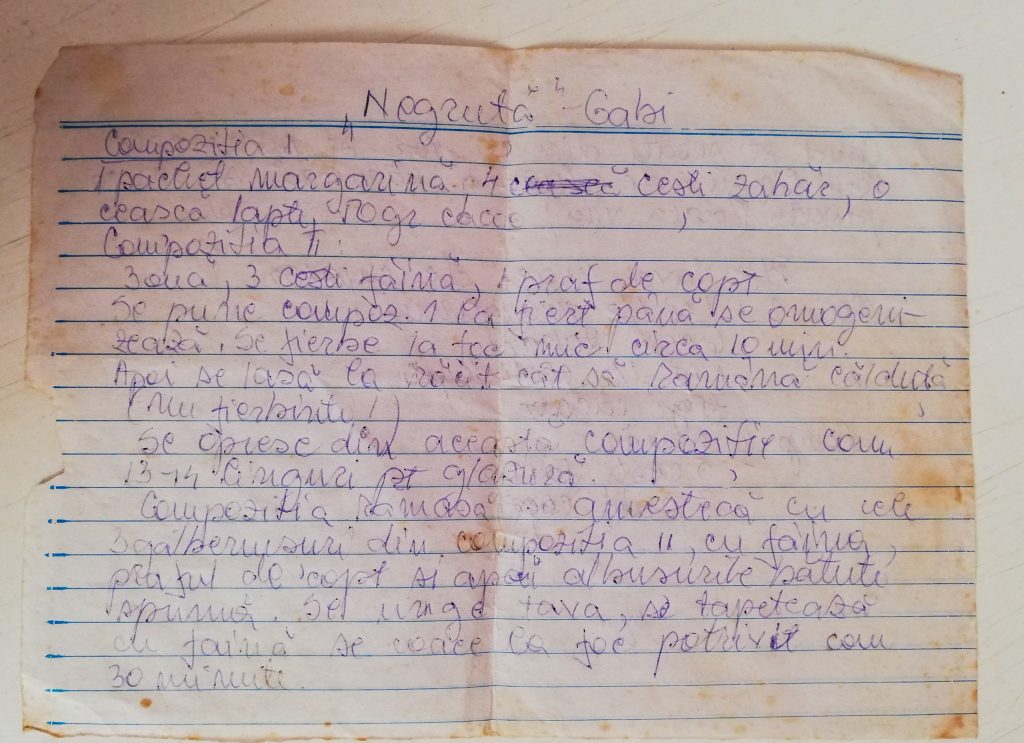 "Negruță" Gabi
Compoziția I
1 pachet margarină 4 cești zahăr, o
ceașcă lapte, 50gr cacao
Compoziția II:
3ouă, 3 cești făină, 1 praf de copt
Se pune compoz. 1 la fiert până se omogeni-
zează. Se fierbe la foc mic circa 10 min.
Apoi se lasă la răcit cât să rămână călduță
(nu fierbinte!)
Se opresc din această compoziție cam
13-14 linguri pt glazură.
Compoziția rămasă s amestecă cu cele
3 gălbenușuri din compoziția II, cu făina,
praful de copt și apoi albușurile bătute
spumă. Se unge tava, se tapetează
cu făină se coace la foc potrivit cam
30 minute.